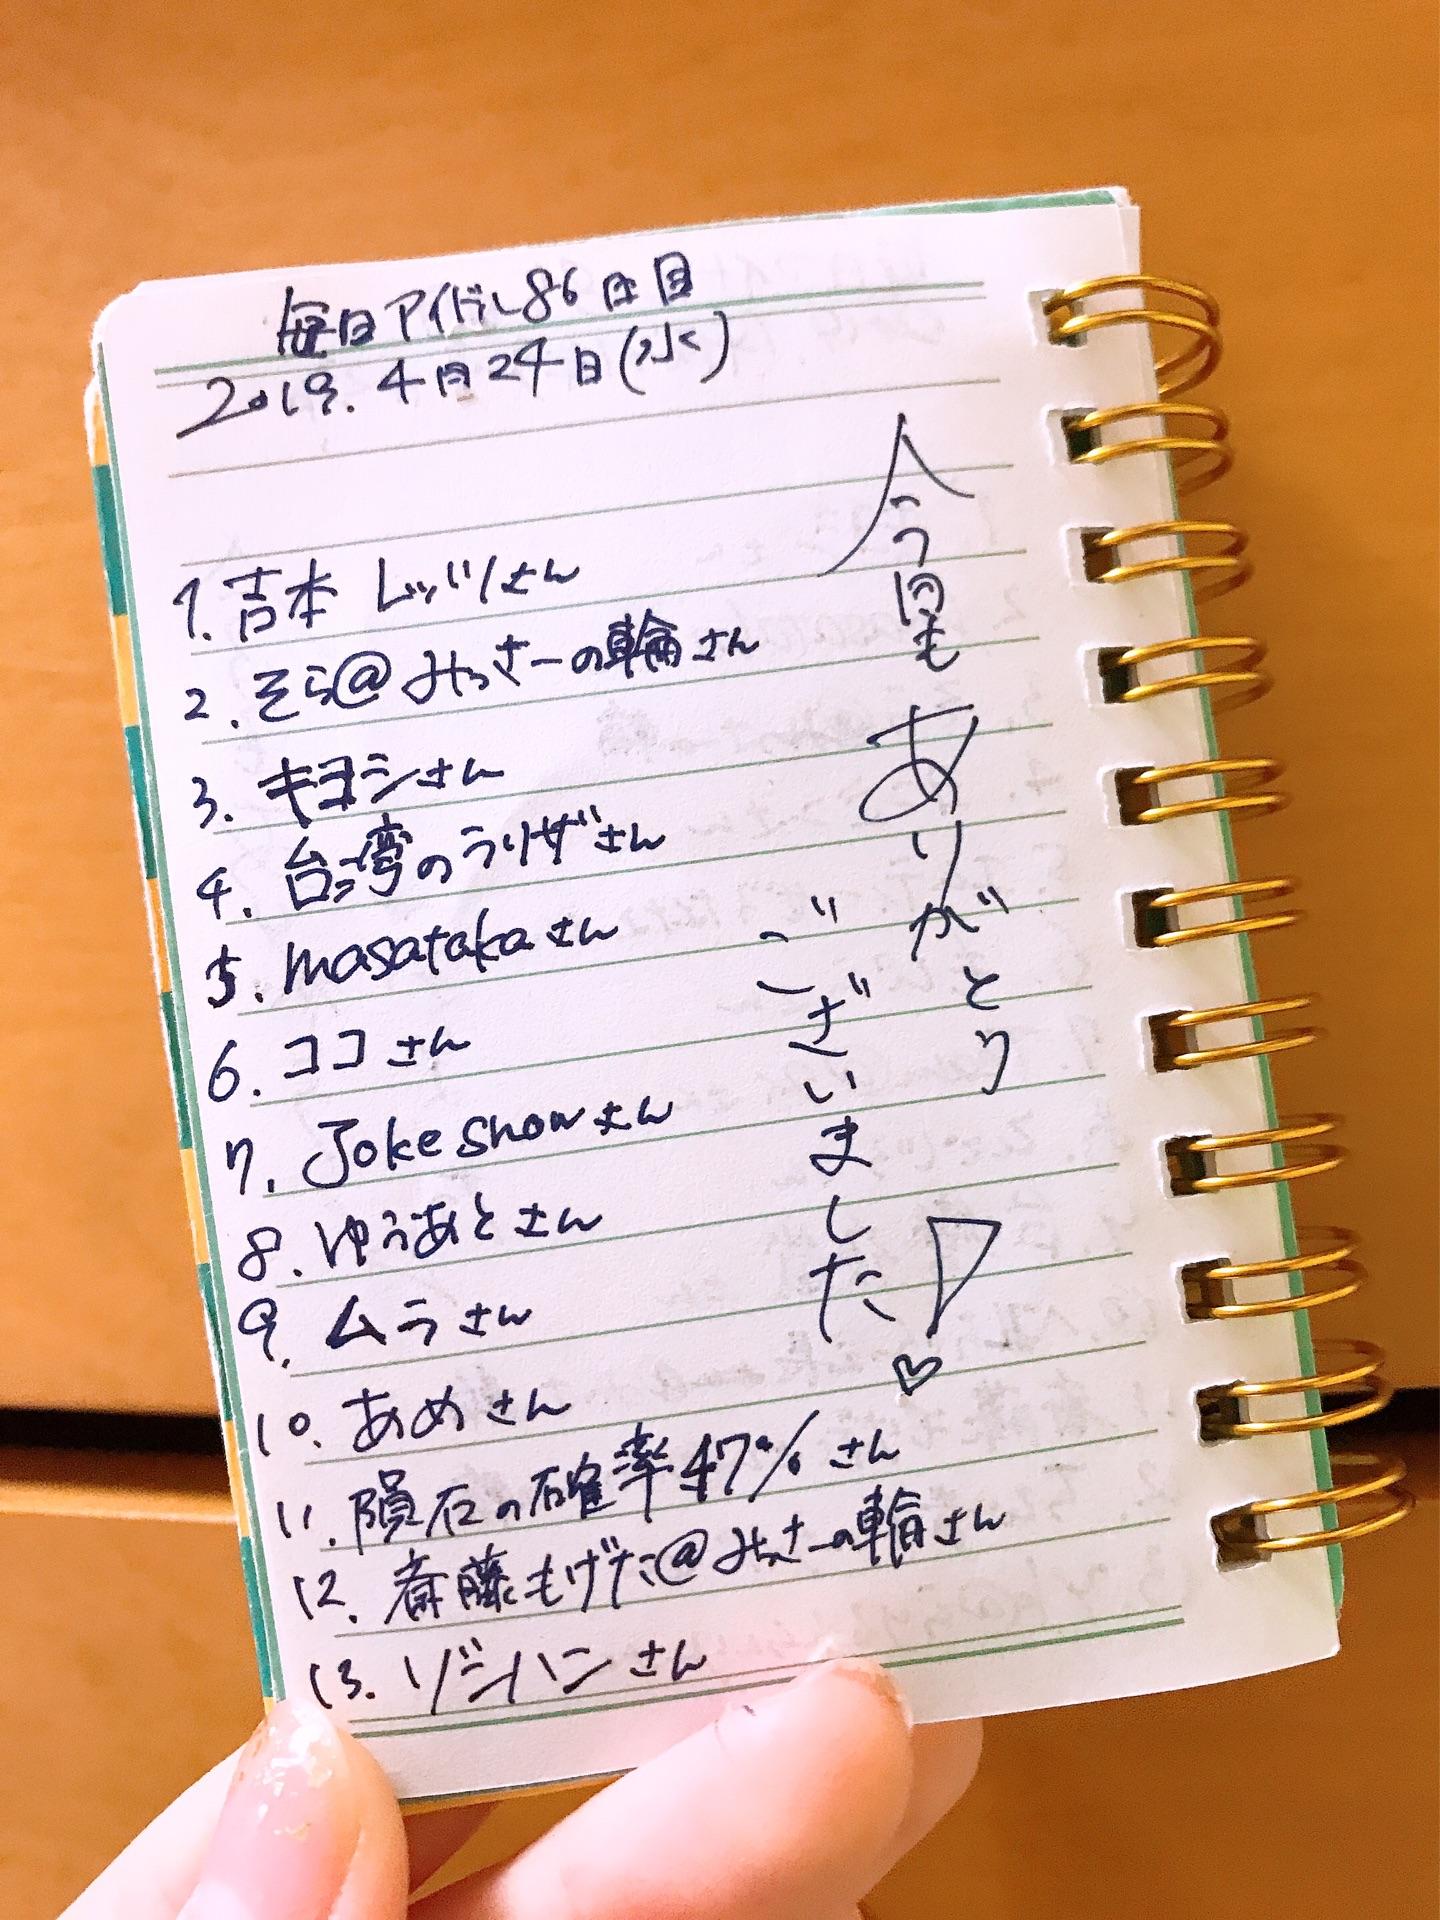 毎日アイドル86日目
2019.4月24日(水)
1.吉本レッツ!さん
2.そら@みっさーの輪さん
3.キヨシさん
4.台湾のうりざさん
5.masatakaさん
6.ココさん
7.Joke showさん
8.ゆうあとさん
9.ムラさん
10.あめさん
11.隕石の確率47%さん
12.斉藤もげた@みっさーの輪さん
13.ソ゛ンハンさん
今回も
ありがとう
ございました
♡